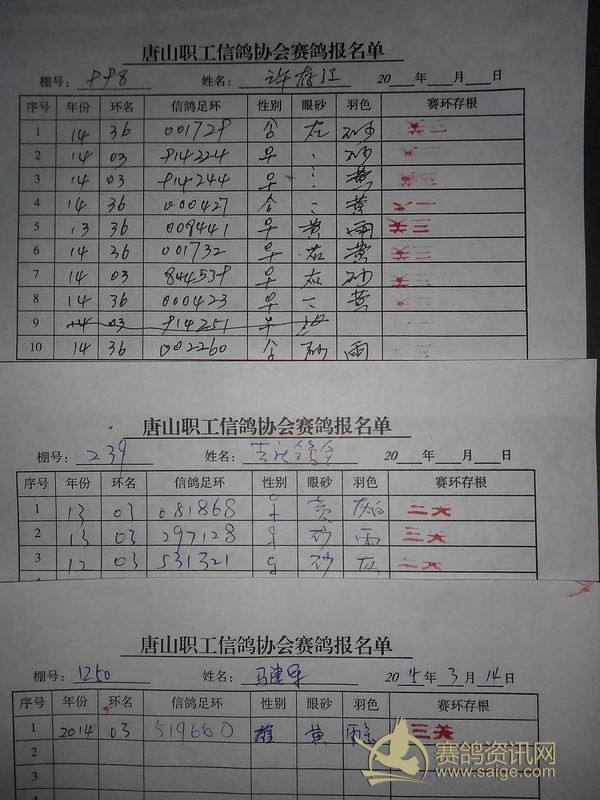 唐山职工信鸽协会赛鸽报名单
棚号: 998 姓名: 许存江 20 年 月 日
序号 年份 环名 信鸽足环 性别 眼砂 羽色 赛环存根
1 14 36 001729 合 砂
2 14 03 914224 早 、 砂
3 14 03 914244 早 黄
4 14 36 000427 合 黄
5 13 36 009441 早 黄 雨 三关
6 14 36 001732 早 黄
7 14 03 844539 早 砂
8 14 36 000423 早 黄
9 14 03 914251 早
10 14 36 002260 合 砂 雨
唐山职工信鸽协会赛鸽报名单
棚号: 239 姓名: 20 年 月 日
序号 年份 环名 信鸽足环 性别 眼砂 羽色 赛环存根
1 13 03 081868 黄 二关
2 13 03 297128 砂 雨 三关
3 12 03 531321 砂 灰 二关
唐山职工信鸽协会赛鸽报名单
棚号: 1250 姓名: 马建军 2015 年 3 月 14 日
序号 年份 环名 信鸽足环 性别 眼砂 羽色 赛环存根
1 2014 03 519660 雄 黄 三关
2
3
4
赛鸽资讯网
www.saige.com